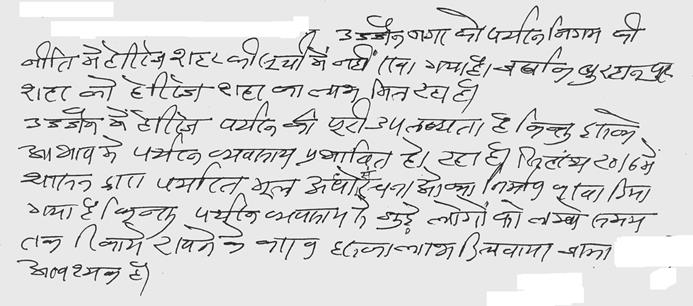 उज्जैन नगर को पर्यटन निगम की
नीति में हेरिटेज शहर की सूची में नहीं रखा गया है। जबकि बुरहानपुर
शहर को हेरिटेज शहर का लाभ मिल रहा है।
उज्जैन में हेरिटेज पर्यटन की पूरी उपलब्धता है किन्तु इसके
अभाव में पर्यटन व्यवसाय प्रभावित हो रहा है। सिंहस्थ 2016 में
शासन द्वारा पर्यटन मूल अधोसंरचनाओं का निर्माण करवा दिया
गया है किन्तु पर्यटन व्यवसाय से जुड़े लोगों को लम्बे समय
तक इसका लाभ दिलवाया जाना
आवश्यक है।